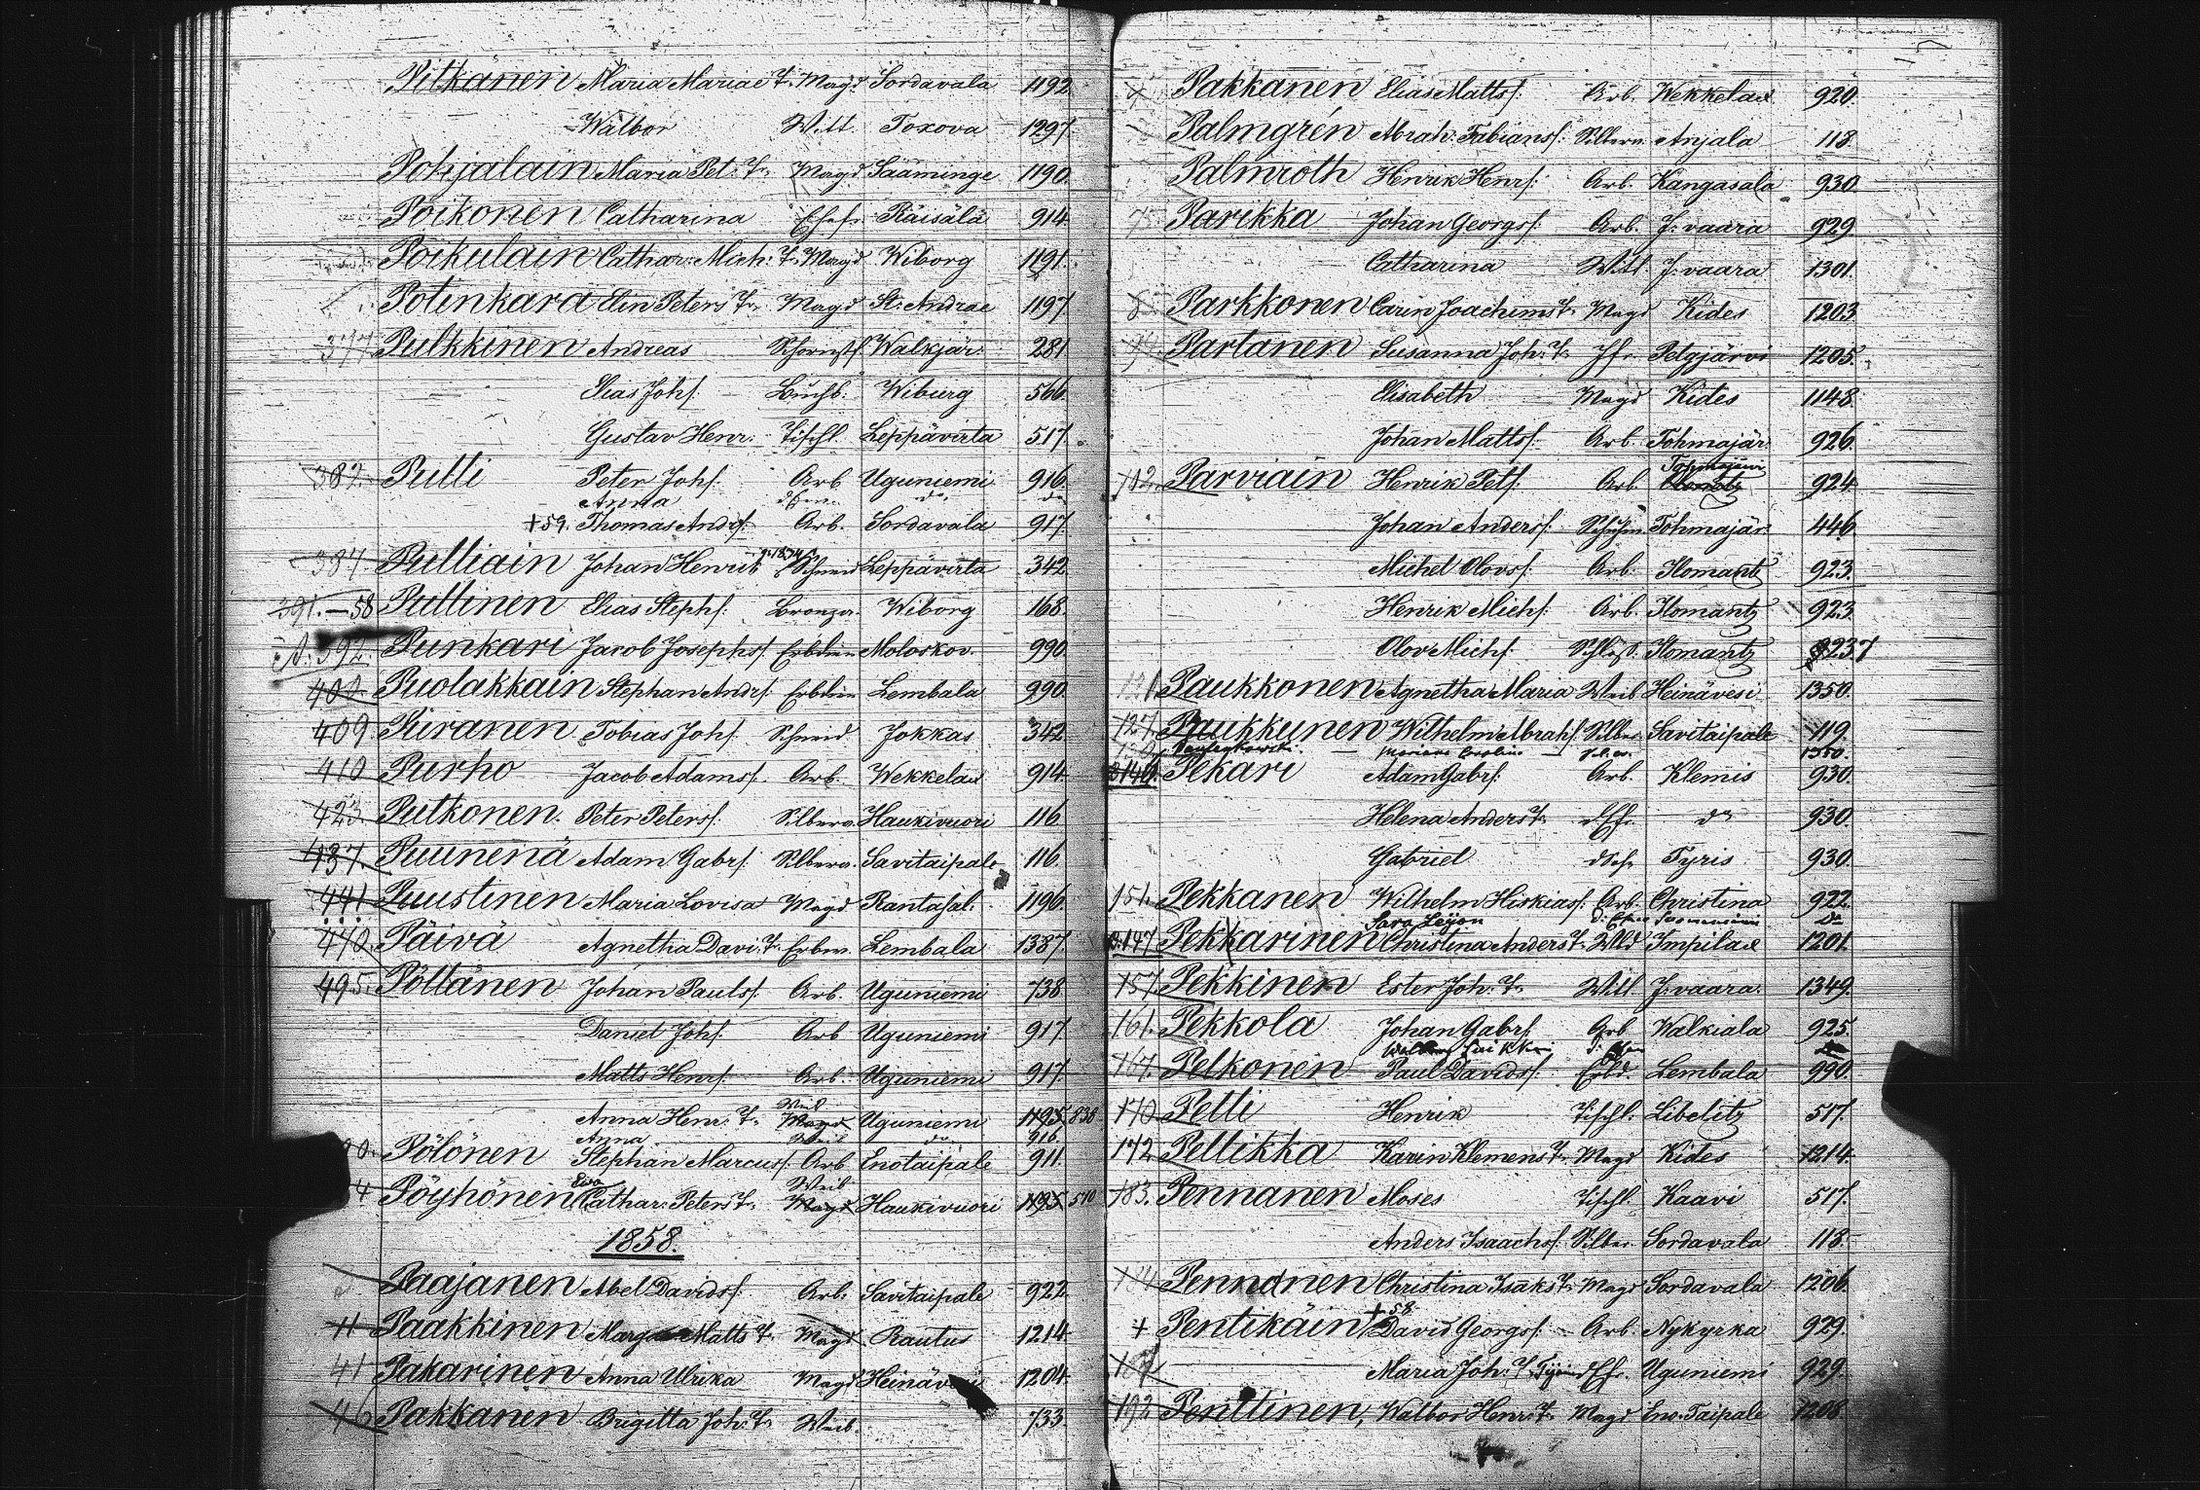 Pitkänen Maria Mariae T. Magd Sordavala 1192
Walbor Witt. Toxova 1297.
Pohjalain Maria Pet: T. Magd Sääminge 1190.
Poikonen Catharina Ehefr Räisälä 914.
Poikulain Cathar: Mich: T. Magd Wiborg 1191.
Potinkara Elin Peters T. Magd St: Andrae 1197.
377 Pulkkinen Andreas Schornstf Walkjär: 281.
Elias Johs. Buchb: Wiburg 566.
Gustav Henr. Tischl. Leppävirta 517.
382. Pulli Peter Johs. Arb Uguniemi 916.
Anna do do
+59. Thomas Andrs. Arb. Sordavala 917.
384 Pulliain Johan Henrik Schneid Leppävirta 342.
391.-58 Pullinen Elias Stephs. Bronzar. Wiborg 168.
A. 392. Punkari Jacob Josephs. Erbdien Moloskov. 990.
400. Puolakkain Stephan Andrs. Erbdien Lembala 990.
409. Puranen Tobias Johs Schneid Jokkas 342.
410 Purho Jacob Adamss. Arb. Wekkelax 914.
423. Putkonen. Peter Peterss. Silbera. Haukivuori 116.
437. Puunenä Adam Gabrs. Silbera. Savitaipale 116.
441 Puustinen Maria Lovisa Magd Rantasal. 1196.
470. Päivä Agnetha Davi. T. Erbm. Lembala 1387.
495. Pöllänen Johan Paulss. Arb. Uguniemi 738
Daniel Johs. Arb Uguniemi 917.
Matts Henrs. Arb. Uguniemi 917.
Weib
Anna Henr. T. Magd Uguniemi 1195 838
Anna Weib do 916.
Pölönen Stephan Marcuss. Arb Enotaipale 911.
Eva Weib
4 Pöyhönen Cathar. Peters T. Magd Haukivuori 1195 510
1858.
Paajanen Abel Davids. Arb. Savitaipale 922.
11 Paakkinen Matts T. Magd Rautus 1214.
41 Pakarinen Anna Ulrika Magd 1204.
46 Pakkanen Brigitta Joh. T. Weib. 733.
Pakkanen Elias Matts. Arb. Wekkelax 920.
Palmgrén Abrah: Fabianss. Silbera. Anjala 118.
Palmroth Henrik Henrs. Arb. Kangasala 930.
Parikka Johan Georgs. Arb. J: vaara 929.
Catharina Witt. J: vaara 1301.
Parkkonen Carin Joachims T. Magd Kides 1203
Partanen Susanna Joh. T. Jfr. Pelgjärvi 1205.
Elisabeth Magd Kides 1148.
Johan Matts. Arb. Tohmajär 926.
Tohmajärvi
112. Parviain Henrik Pets. Arb. Ilomantz 924.
Johan Anders. Schuhm Tohmajär. 446.
Michel Olovs. Arb. Ilomantz 923.
Henrik Michs. Arb. Ilomantz 923.
Olov Michs. Schloss. Ilomantz 237
121 Paukkonen Agnetha Maria Weib Heinävesi 1350.
127. Paukkunen Wilhelm Abrahs. Silber. Savitaipale 119.
1350.
146. Pekari Adam Gabrs. Arb. Klemis 930.
Helena Anders T. d Ef. do 930.
Gabriel d Sohn Tyris 930.
151. Pekkanen Wilhelm Hiskiass. Arb. Christina 922.
Sara Leijon d: Ehefr Suomenniemi do
147. Pekkarinen Christina Anders T. Wld Impilax 1201.
157. Pekkinen Ester Joh. T. Witt J: vaara. 1349.
161. Pekkola Johan Gabrs. Arb Walkiala 925.
167. Pelkonen Paul Davids. Erbd. Lembala 990.
170 Pelli Henrik Tischl. Libelitz 517.
172 Pellikka Karin Klemens T. Magd Kides 1214.
183. Pennanen Moses Tischl. Kaavi 517.
Anders Isaachs. Silber. Sordavala 118.
184 Pennonen Christina Isaks T. Magd Sordavala 1206.
+58.
+ Pentikäin David Georgs. Arb. Nykyrka 929.
187 Maria Joh. T. d Ef. Uguniemi 929.
192 Penttinen, Walbor Henr. T. Magd Eno: Taipale 1208.